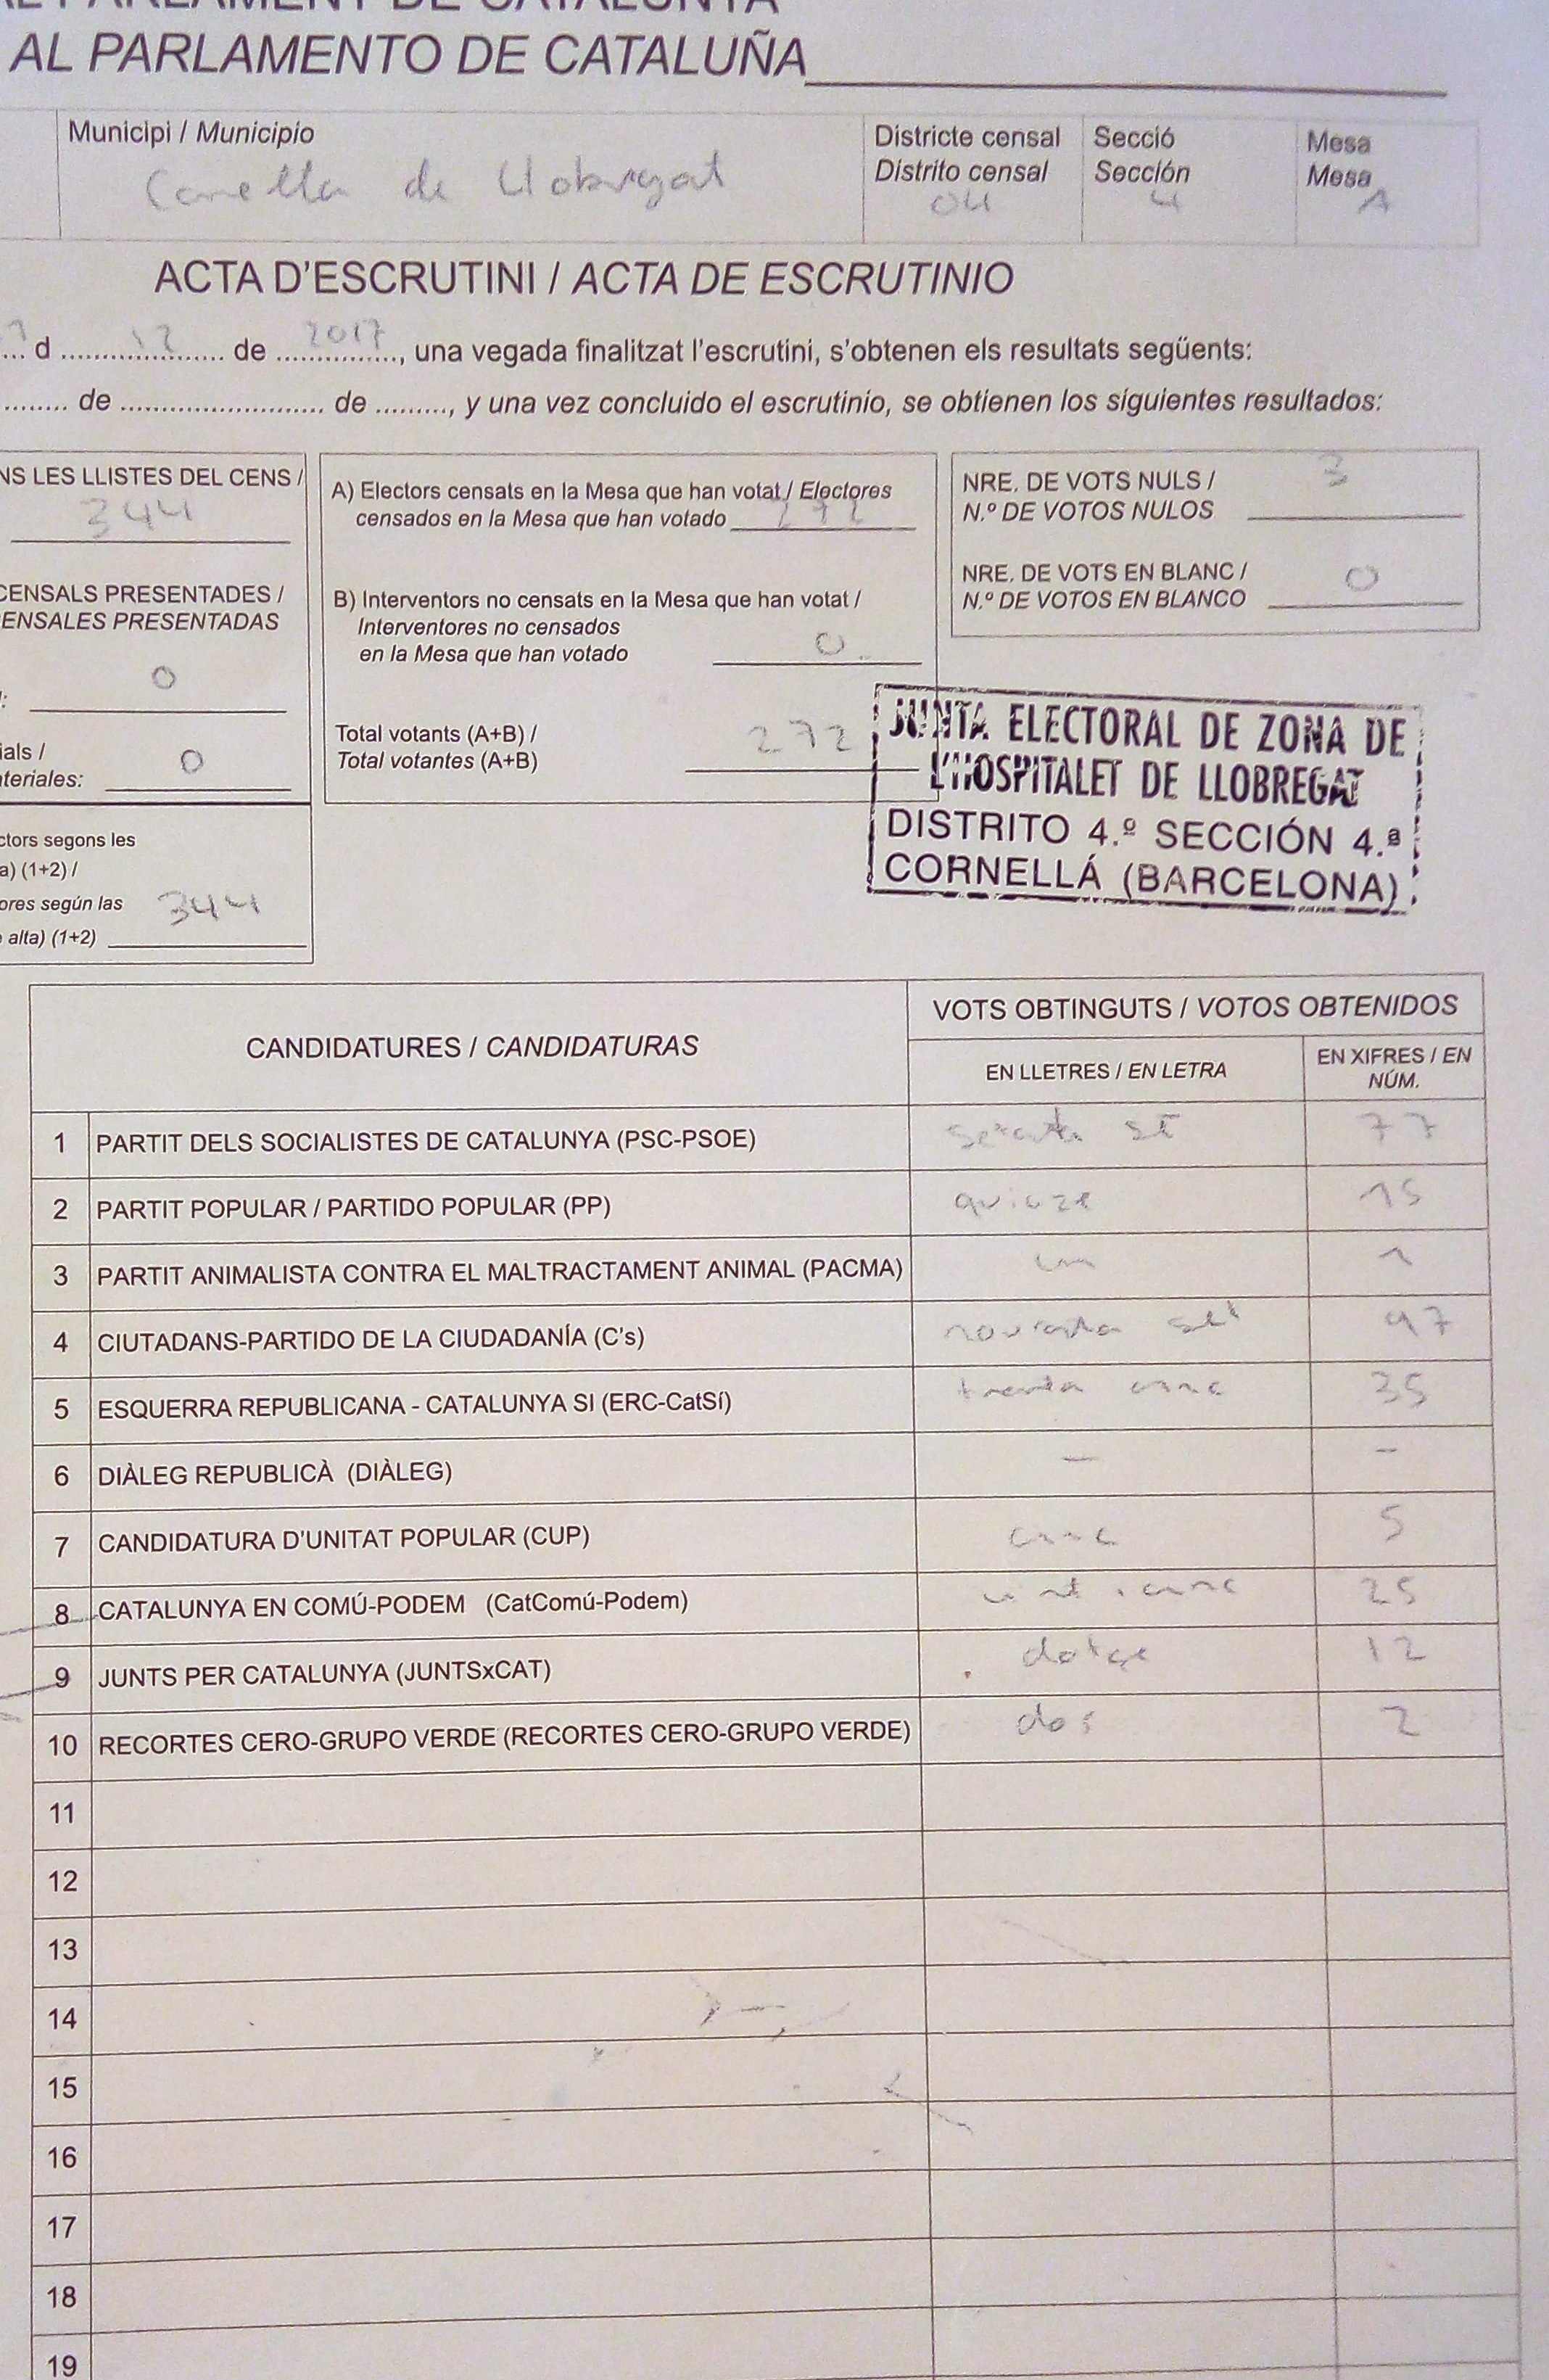 AL PARLAMENT DE CATALUNYA
AL PARLAMENTO DE CATALUÑA
Municipi / Municipio
Cornella de Llobregat
Districte censal
Distrito censal
04
Secció
Sección
4
Mesa
Mesa
A
ACTA D'ESCRUTINI / ACTA DE ESCRUTINIO
d 12 de 2017, una vegada finalitzat l'escrutini, s'obtenen els resultats següents:
de de, y una vez concluido el escrutinio, se obtienen los siguientes resultados:
NS LES LLISTES DEL CENS /
344
CENSALS PRESENTADES /
ENSALES PRESENTADAS
0
ials /
ateriales: 0
ctors segons les
a) (1+2) /
ores según las 344
alta) (1+2)
A) Electors censats en la Mesa que han votat / Electores
censados en la Mesa que han votado 272
B) Interventors no censats en la Mesa que han votat /
Interventores no censados
en la Mesa que han votado 0
Total votants (A+B) /
Total votantes (A+B) 272
NRE. DE VOTS NULS / 3
N.º DE VOTOS NULOS
NRE. DE VOTS EN BLANC / 0
N.º DE VOTOS EN BLANCO
JUNTA ELECTORAL DE ZONA DE
L'HOSPITALET DE LLOBREGAT
DISTRITO 4.º SECCIÓN 4.ª
CORNELLÁ (BARCELONA)
CANDIDATURES / CANDIDATURAS
VOTS OBTINGUTS / VOTOS OBTENIDOS
EN LLETRES / EN LETRA
EN XIFRES / EN
NÚM.
1 PARTIT DELS SOCIALISTES DE CATALUNYA (PSC-PSOE) 77
2 PARTIT POPULAR / PARTIDO POPULAR (PP) quinze 15
3 PARTIT ANIMALISTA CONTRA EL MALTRACTAMENT ANIMAL (PACMA) un 1
4 CIUTADANS-PARTIDO DE LA CIUDADANÍA (C's) noranta set 97
5 ESQUERRA REPUBLICANA - CATALUNYA SI (ERC-CatSí) trenta cinc 35
6 DIÀLEG REPUBLICÀ (DIÀLEG) — –
7 CANDIDATURA D'UNITAT POPULAR (CUP) cinc 5
8 CATALUNYA EN COMÚ-PODEM (CatComú-Podem) vint i cinc 25
9 JUNTS PER CATALUNYA (JUNTSxCAT) dotze 12
10 RECORTES CERO-GRUPO VERDE (RECORTES CERO-GRUPO VERDE) dos 2
11
12
13
14
15
16
17
18
19